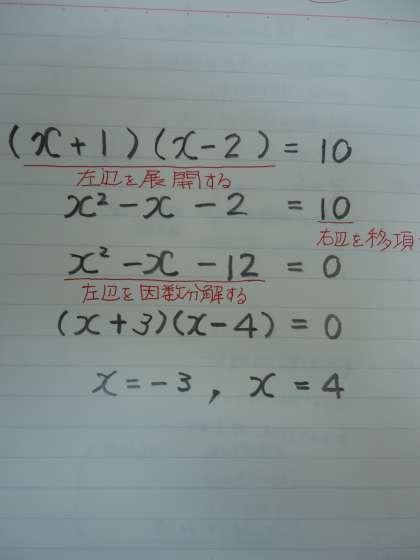 (x+1)(x-2) = 10
左辺を展開する
x² - x - 2 = 10
右辺を移項
x² - x - 12 = 0
左辺を因数分解する
(x+3)(x-4) = 0
x = -3 , x = 4